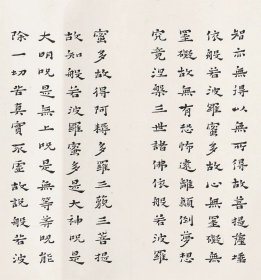 智亦無得以無所得故菩提薩埵
依般若波羅蜜多故心無罣礙無
罣礙故無有恐怖遠離顛倒夢想
究竟涅槃三世諸佛依般若波羅
蜜多故得阿耨多羅三藐三菩提
故知般若波羅蜜多是大神呪是
大明呪是無上呪是無等等呪能
除一切苦真實不虛故說般若波